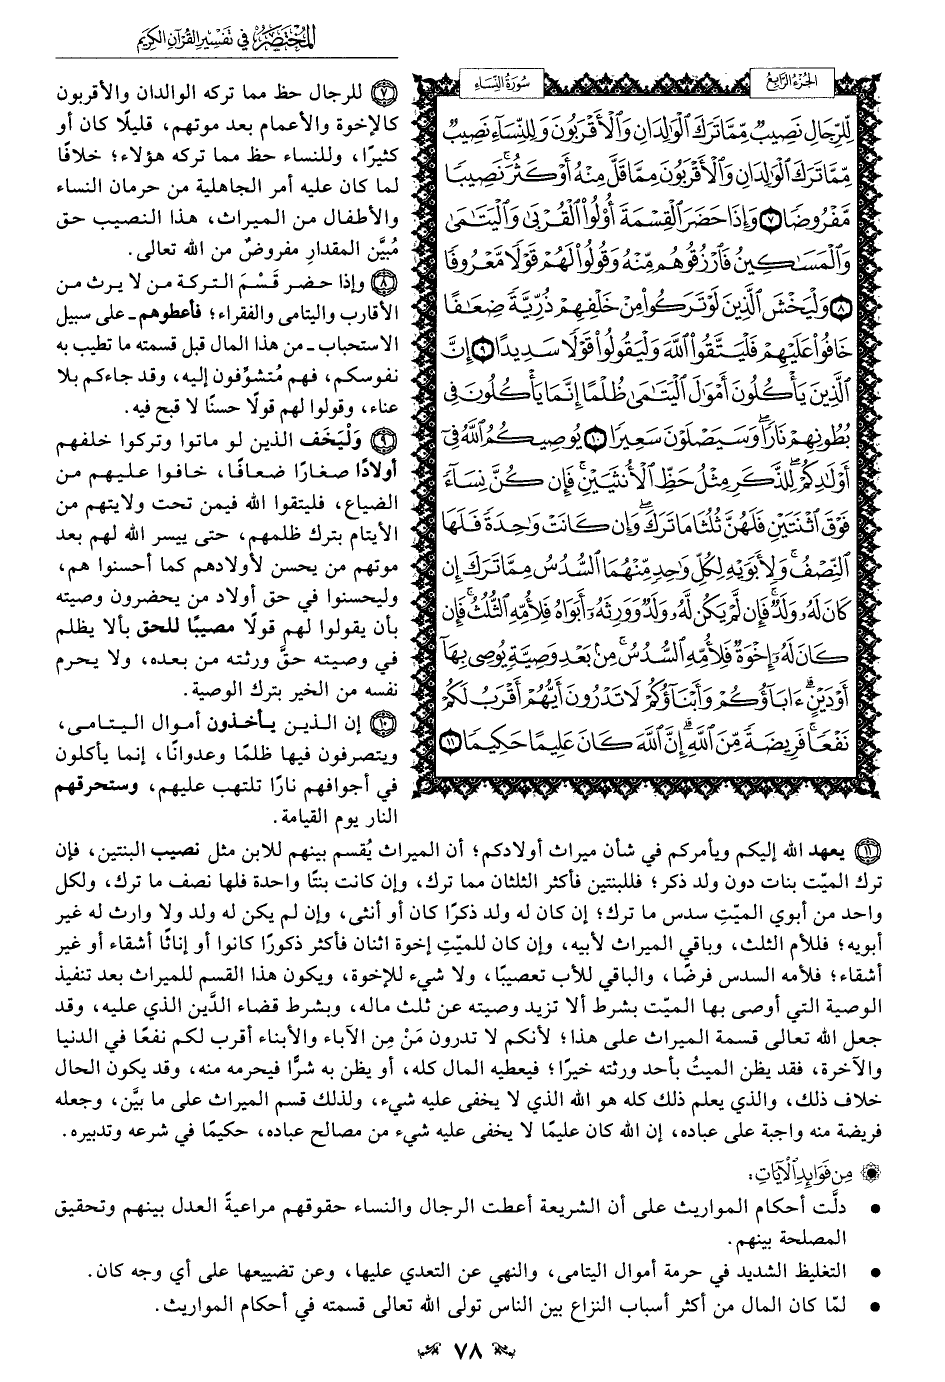 المختصر في تفسير القرآن الكريم
الجزء الرابع
سورة النساء
لِّلرِّجَالِ نَصِيبٌ مِّمَّا تَرَكَ ٱلْوَٰلِدَانِ وَٱلْأَقْرَبُونَ وَلِلنِّسَآءِ نَصِيبٌ
مِّمَّا تَرَكَ ٱلْوَٰلِدَانِ وَٱلْأَقْرَبُونَ مِمَّا قَلَّ مِنْهُ أَوْ كَثُرَ ۚ نَصِيبًا
مَّفْرُوضًا ٧ وَإِذَا حَضَرَ ٱلْقِسْمَةَ أُو۟لُوا۟ ٱلْقُرْبَىٰ وَٱلْيَتَٰمَىٰ
وَٱلْمَسَٰكِينُ فَٱرْزُقُوهُم مِّنْهُ وَقُولُوا۟ لَهُمْ قَوْلًا مَّعْرُوفًا
٨ وَلْيَخْشَ ٱلَّذِينَ لَوْ تَرَكُوا۟ مِنْ خَلْفِهِمْ ذُرِّيَّةً ضِعَٰفًا
خَافُوا۟ عَلَيْهِمْ فَلْيَتَّقُوا۟ ٱللَّهَ وَلْيَقُولُوا۟ قَوْلًا سَدِيدًا ٩ إِنَّ
ٱلَّذِينَ يَأْكُلُونَ أَمْوَٰلَ ٱلْيَتَٰمَىٰ ظُلْمًا إِنَّمَا يَأْكُلُونَ فِى
بُطُونِهِمْ نَارًا ۖ وَسَيَصْلَوْنَ سَعِيرًا ١٠ يُوصِيكُمُ ٱللَّهُ فِىٓ
أَوْلَٰدِكُمْ ۖ لِلذَّكَرِ مِثْلُ حَظِّ ٱلْأُنثَيَيْنِ ۚ فَإِن كُنَّ نِسَآءً
فَوْقَ ٱثْنَتَيْنِ فَلَهُنَّ ثُلُثَا مَا تَرَكَ ۖ وَإِن كَانَتْ وَٰحِدَةً فَلَهَا
ٱلنِّصْفُ ۚ وَلِأَبَوَيْهِ لِكُلِّ وَٰحِدٍ مِّنْهُمَا ٱلسُّدُسُ مِمَّا تَرَكَ إِن
كَانَ لَهُۥ وَلَدٌ ۚ فَإِن لَّمْ يَكُن لَّهُۥ وَلَدٌ وَوَرِثَهُۥٓ أَبَوَاهُ فَلِأُمِّهِ ٱلثُّلُثُ ۚ فَإِن
كَانَ لَهُۥٓ إِخْوَةٌ فَلِأُمِّهِ ٱلسُّدُسُ ۚ مِنۢ بَعْدِ وَصِيَّةٍ يُوصِى بِهَآ
أَوْ دَيْنٍ ۗ ءَابَآؤُكُمْ وَأَبْنَآؤُكُمْ لَا تَدْرُونَ أَيُّهُمْ أَقْرَبُ لَكُمْ
نَفْعًا ۚ فَرِيضَةً مِّنَ ٱللَّهِ ۗ إِنَّ ٱللَّهَ كَانَ عَلِيمًا حَكِيمًا ١١
٧ للرجال حظ مما تركه الوالدان والأقربون
كالإخوة والأعمام بعد موتهم، قليلًا كان أو
كثيرًا، وللنساء حظ مما تركه هؤلاء؛ خلافًا
لما كان عليه أمر الجاهلية من حرمان النساء
والأطفال من الميراث، هذا النصيب حق
مُبيَّن المقدارِ مفروضٌ من الله تعالى.
٨ وإذا حضر قَسْمَ التركة من لا يرث من
الأقارب واليتامى والفقراء؛ فأعطوهم ـ على سبيل
الاستحباب ـ من هذا المال قبل قسمته ما تطيب به
نفوسكم، فهم مُتشوِّفون إليه، وقد جاءكم بلا
عناء، وقولوا لهم قولًا حسنًا لا قبح فيه.
٩ وَلْيَخَف الذين لو ماتوا وتركوا خلفهم
أولادًا صغارًا ضعافًا، خافوا عليهم من
الضياع، فليتقوا الله فيمن تحت ولايتهم من
الأيتام بترك ظلمهم، حتى ييسر الله لهم بعد
موتهم من يحسن لأولادهم كما أحسنوا هم،
وليحسنوا في حق أولاد من يحضرون وصيته
بأن يقولوا لهم قولًا مصيبًا للحق بألا يظلم
في وصيته حقَّ ورثته من بعده، ولا يحرم
نفسه من الخير بترك الوصية.
١٠ إن الذين يأخذون أموال اليتامى،
ويتصرفون فيها ظلمًا وعدوانًا، إنما يأكلون
في أجوافهم نارًا تلتهب عليهم، وستحرقهم
النار يوم القيامة.
١١ يعهد الله إليكم ويأمركم في شأن ميراث أولادكم؛ أن الميراث يُقسم بينهم للابن مثل نصيب البنتين، فإن
ترك الميّت بنات دون ولد ذكر؛ فللبنتين فأكثر الثلثان مما ترك، وإن كانت بنتًا واحدة فلها نصف ما ترك، ولكل
واحد من أبوي الميّتِ سدس ما ترك؛ إن كان له ولد ذكرًا كان أو أنثى، وإن لم يكن له ولد ولا وارث له غير
أبويه؛ فللأم الثلث، وباقي الميراث لأبيه، وإن كان للميّتِ إخوة اثنان فأكثر ذكورًا كانوا أو إناثًا أشقاء أو غير
أشقاء؛ فلأمه السدس فرضًا، والباقي للأب تعصيبًا، ولا شيء للإخوة، ويكون هذا القسم للميراث بعد تنفيذ
الوصية التي أوصى بها الميّت بشرط ألا تزيد وصيته عن ثلث ماله، وبشرط قضاء الدَّين الذي عليه، وقد
جعل الله تعالى قسمة الميراث على هذا؛ لأنكم لا تدرون مَنْ مِن الآباء والأبناء أقرب لكم نفعًا في الدنيا
والآخرة، فقد يظن الميتُ بأحد ورثته خيرًا؛ فيعطيه المال كله، أو يظن به شرًّا فيحرمه منه، وقد يكون الحال
خلاف ذلك، والذي يعلم ذلك كله هو الله الذي لا يخفى عليه شيء، ولذلك قسم الميراث على ما بيَّن، وجعله
فريضة منه واجبة على عباده، إن الله كان عليمًا لا يخفى عليه شيء من مصالح عباده، حكيمًا في شرعه وتدبيره.
من فوائد الآيات:
• دلَّت أحكام المواريث على أن الشريعة أعطت الرجال والنساء حقوقهم مراعيةً العدل بينهم وتحقيق
المصلحة بينهم.
• التغليظ الشديد في حرمة أموال اليتامى، والنهي عن التعدي عليها، وعن تضييعها على أي وجه كان.
• لمّا كان المال من أكثر أسباب النزاع بين الناس تولى الله تعالى قسمته في أحكام المواريث.
٧٨